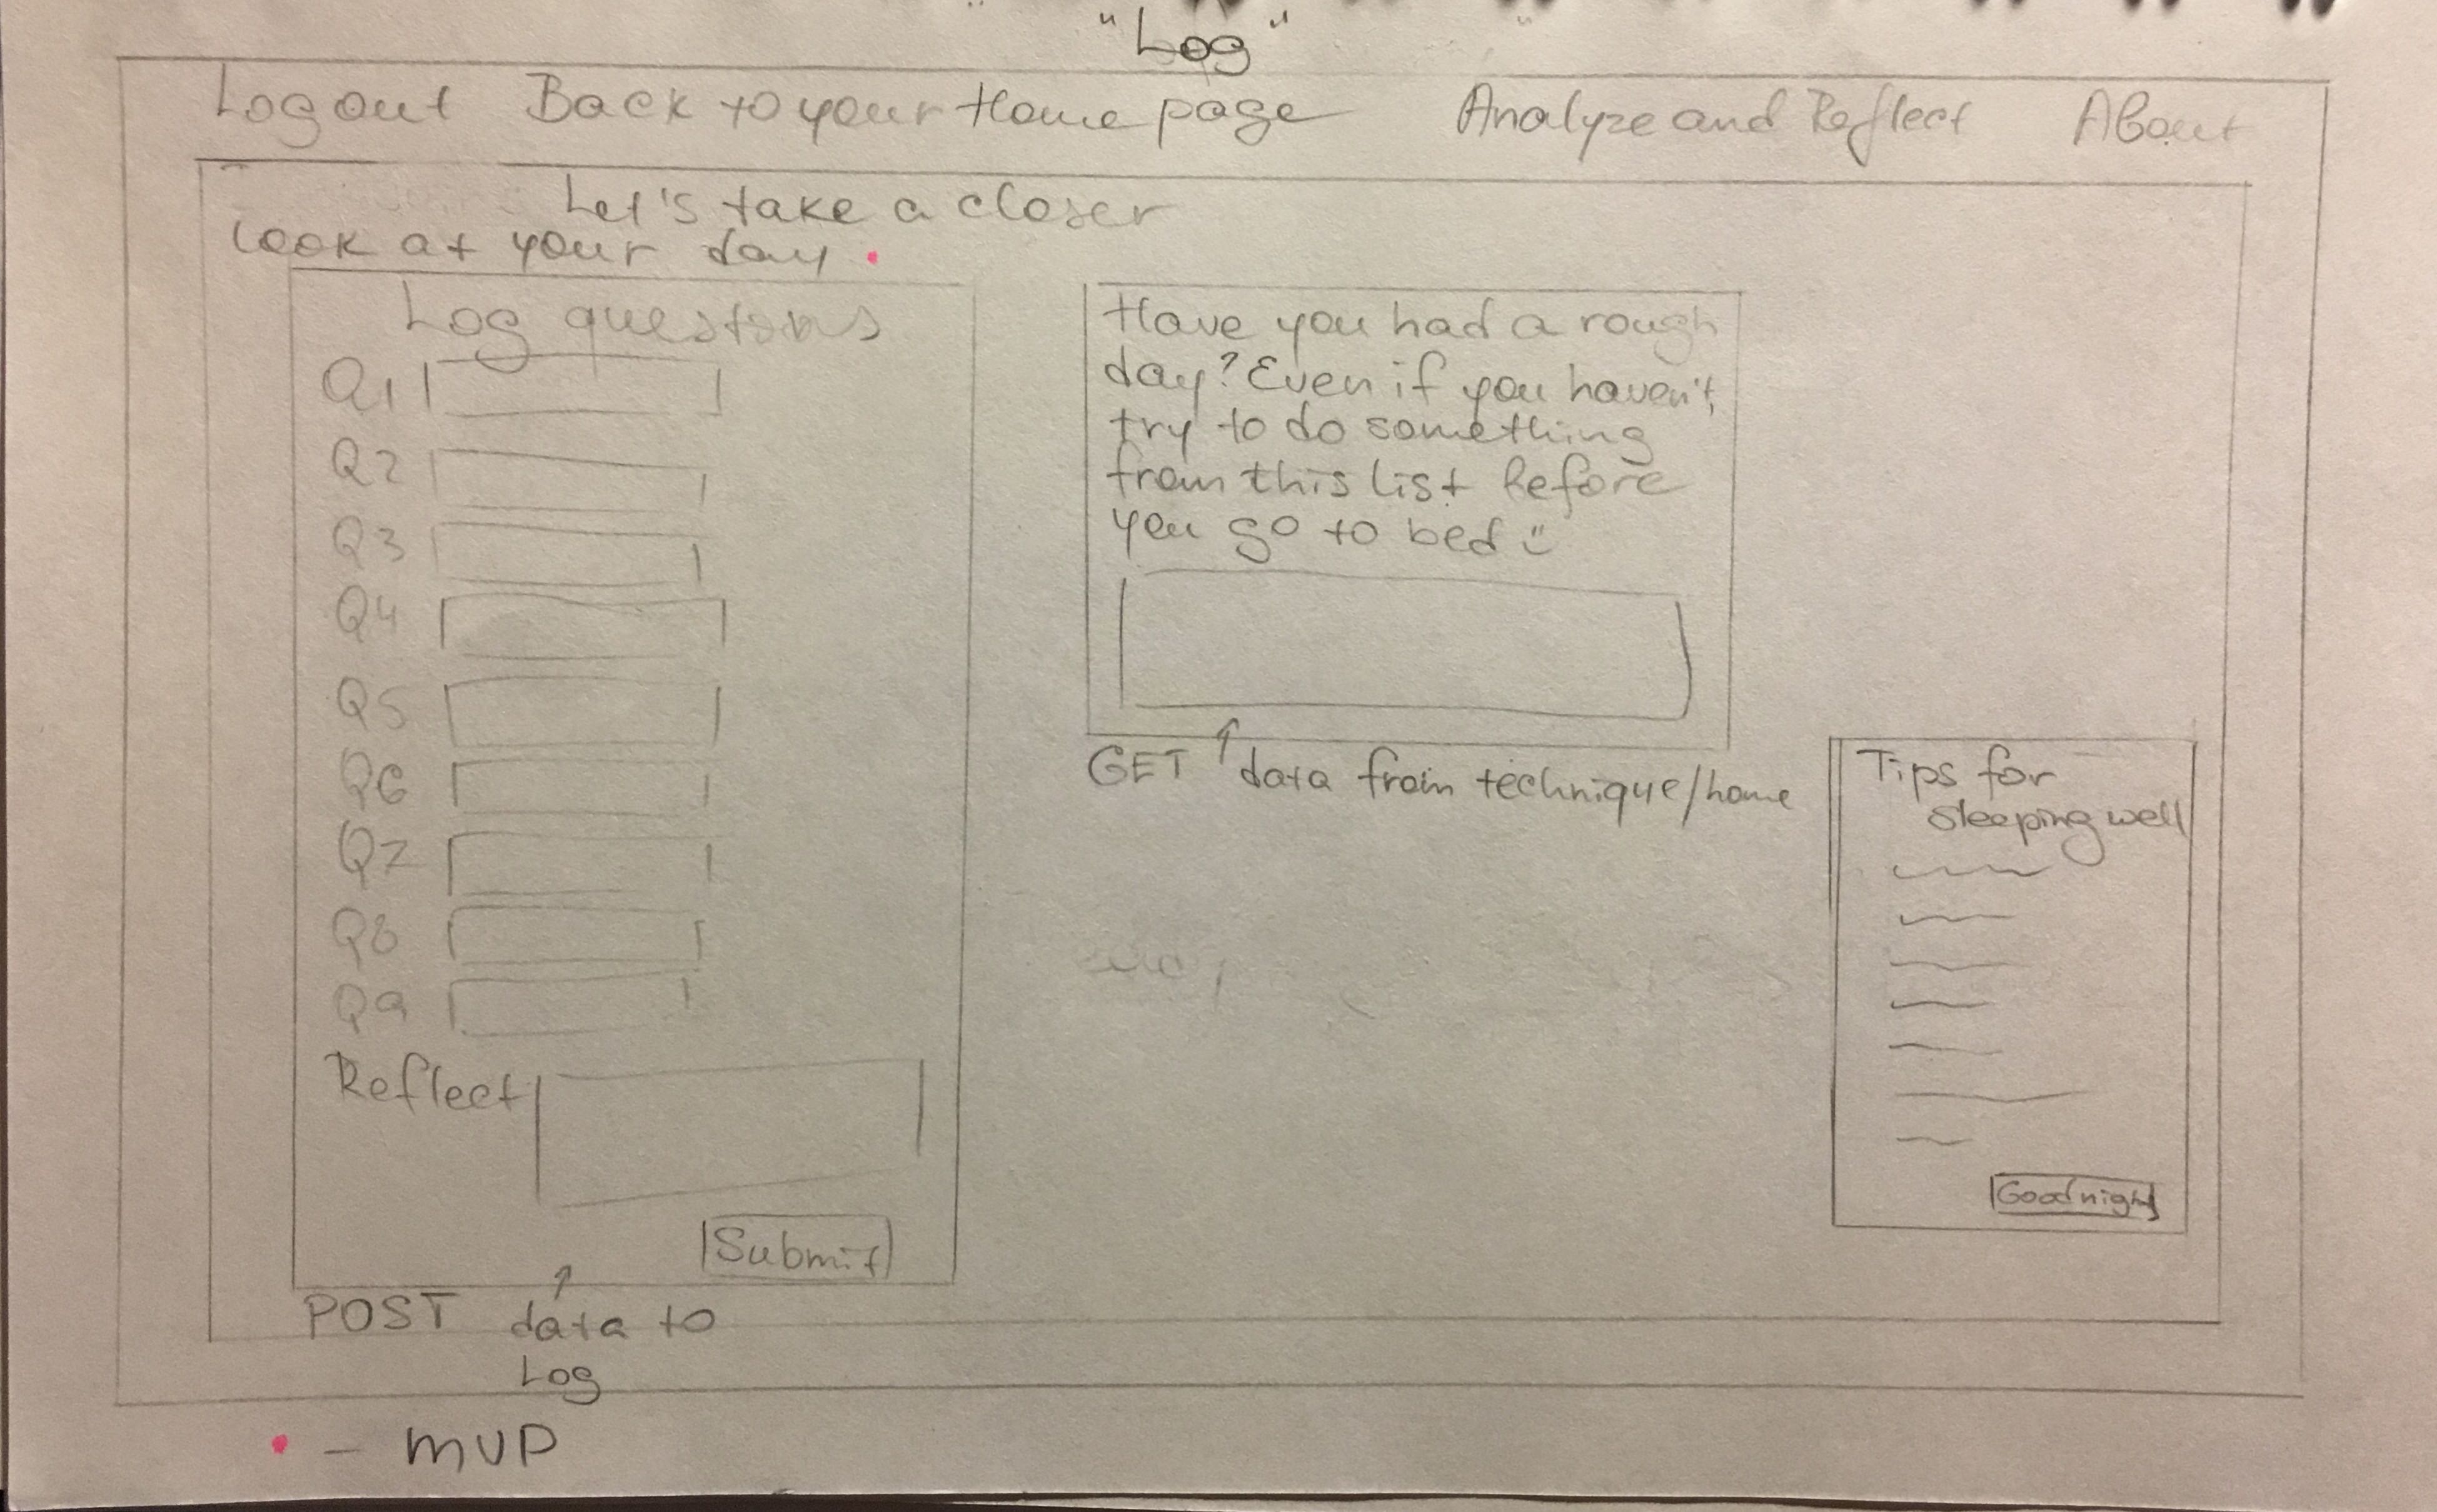 "Log"
Logout Back to your Home page Analyze and Reflect About
Let's take a closer
look at your day.
Log questions
Q1
Q2
Q3
Q4
Q5
Q6
Q7
Q8
Q9
Reflect
Submit
POST data to
Log
Have you had a rough
day? Even if you haven't,
try to do something
from this list before
you go to bed ☺
GET ↑ data from technique/home
Tips for
sleeping well
Goodnight
• - MVP